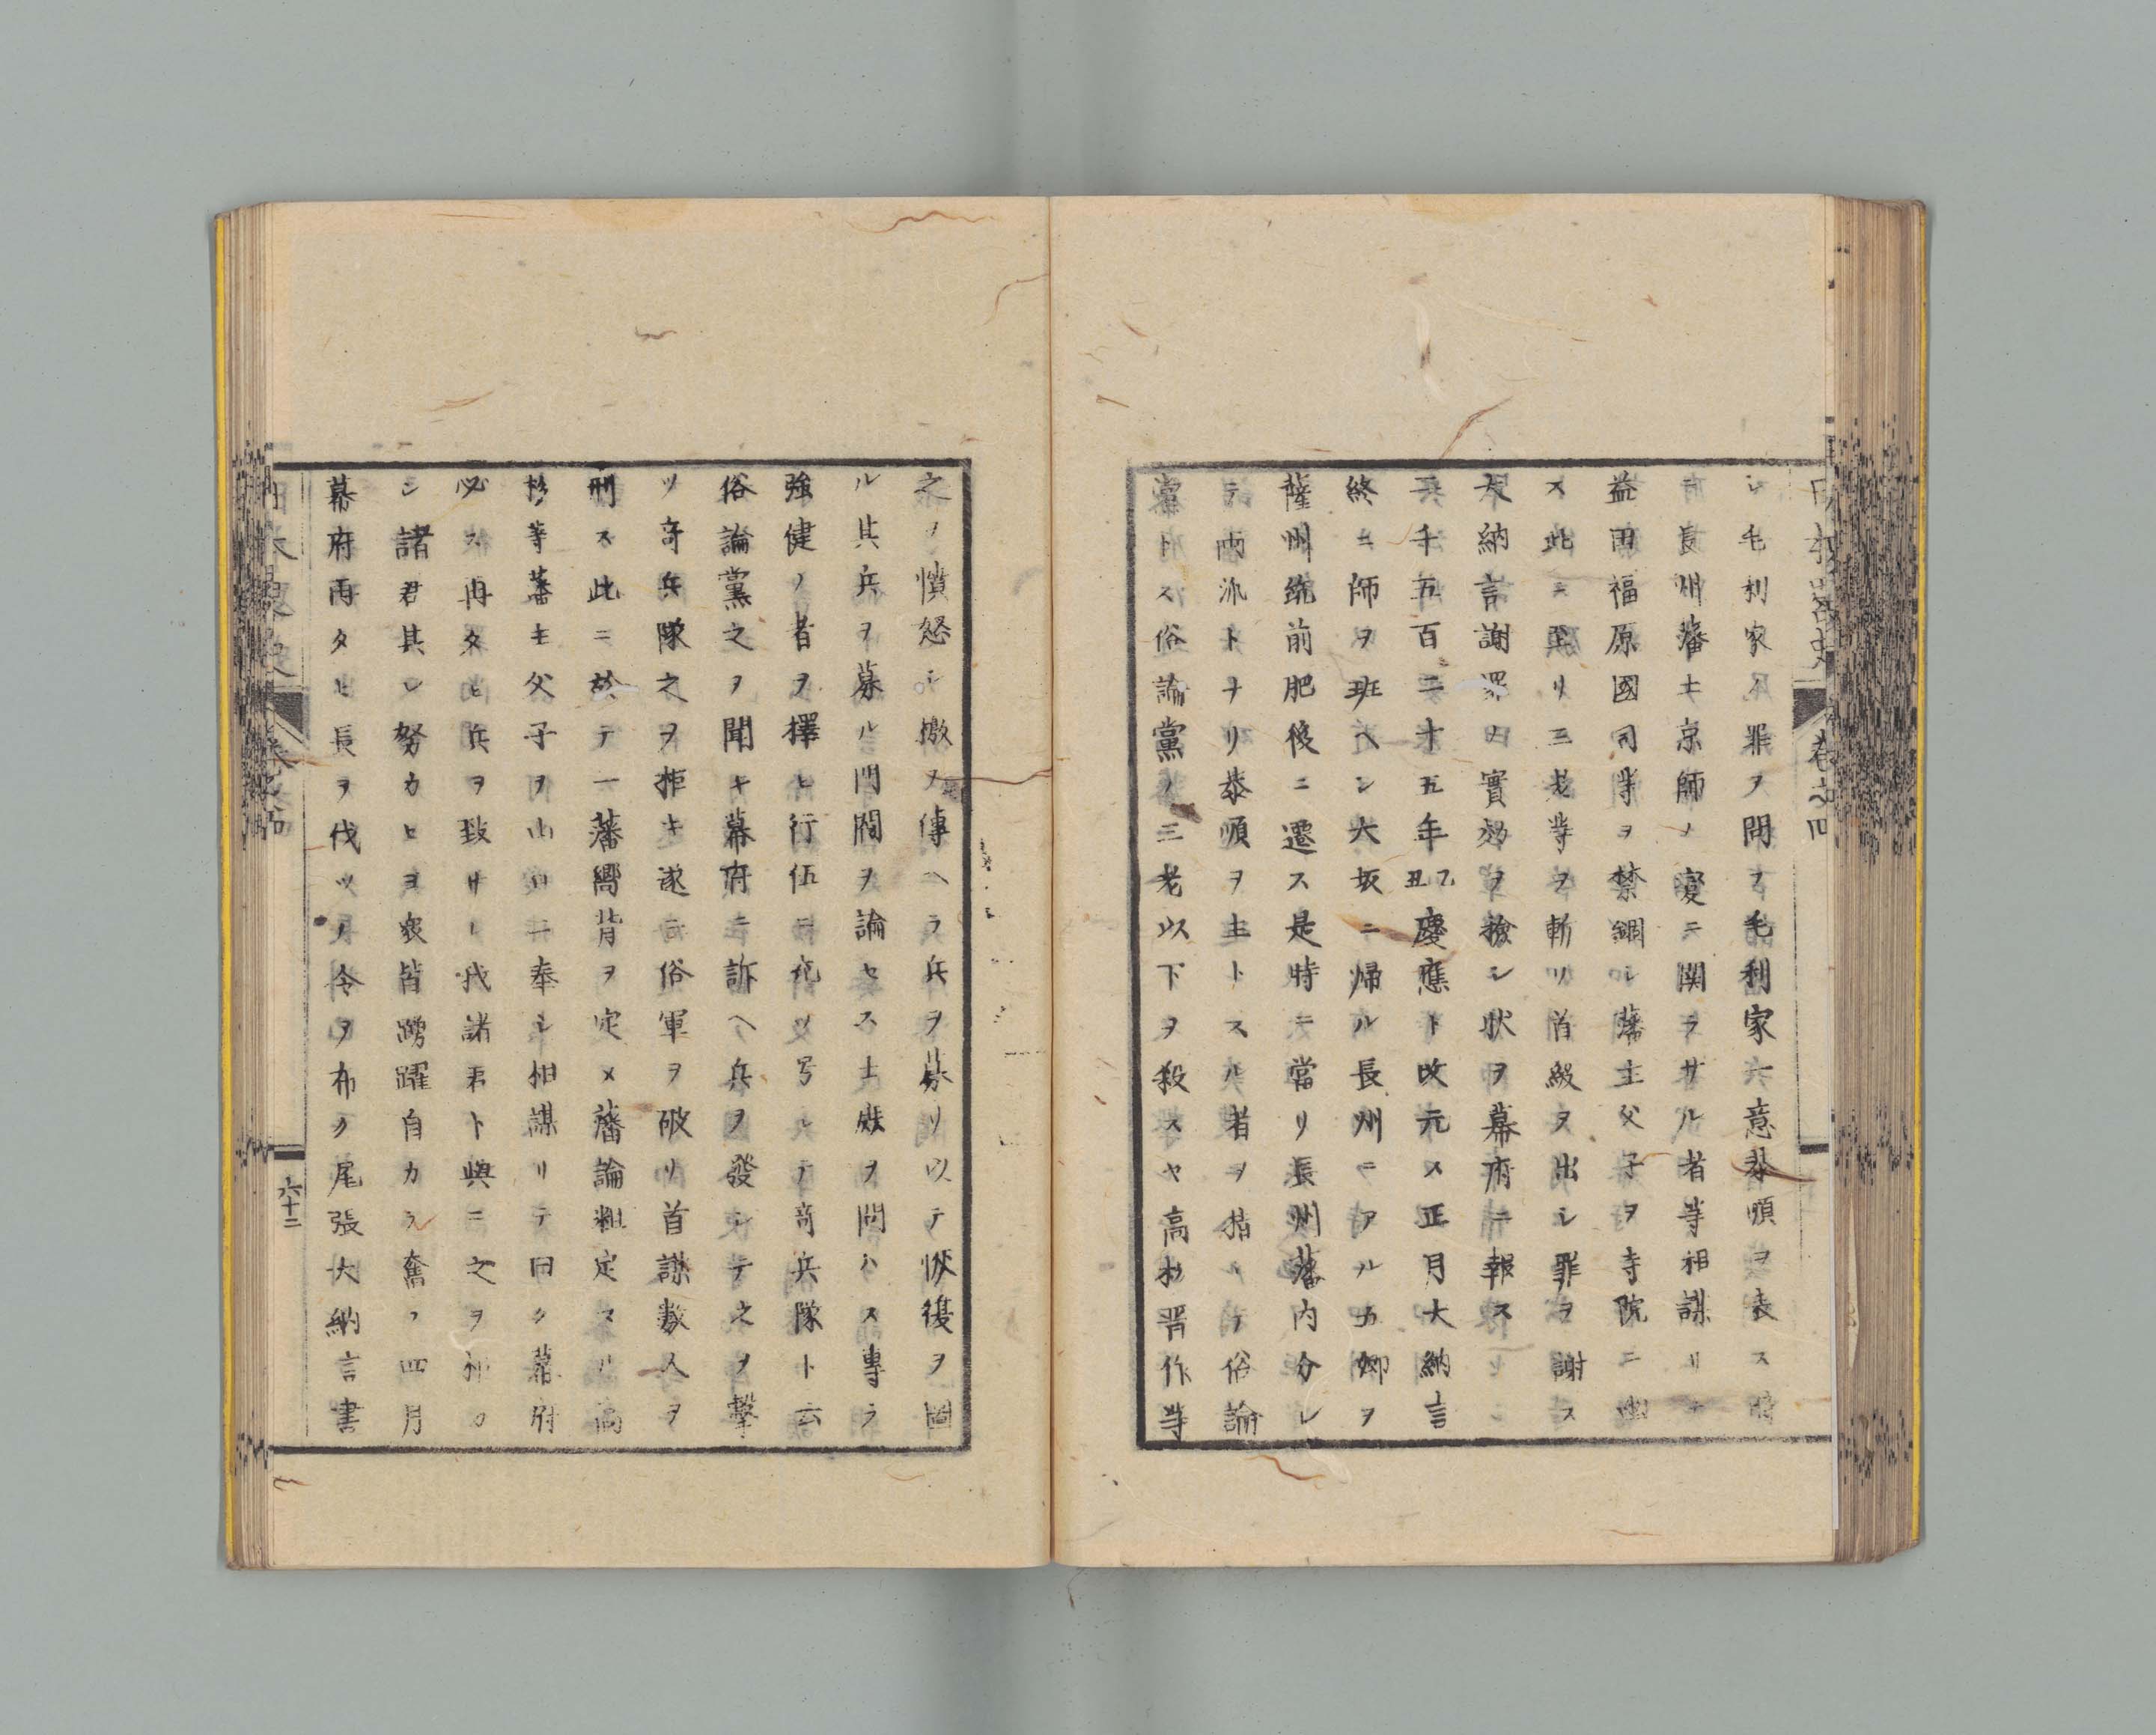 日本畧史 卷之四
シ毛利家ノ罪ヲ問フ毛利家一意恭順ヲ表ス時
長州藩士京師ノ變ニ関ラサル者等相謀リテ
益田福原國司等ヲ禁錮シ藩主父子ヲ寺院ニ幽
ス此ニ至リ三老等ヲ斬リ首級ヲ出シ罪ヲ謝ス
大納言謝罪ノ實効ヲ撿シ狀ヲ幕府ニ報ス
二千五百二十五年乙丑慶應ト改元ス正月大納言
終ニ師ヲ班ヘシ大坂ニ帰ル長州ニアル五卿ヲ
薩州筑前肥後ニ遷ス是時ニ當リ長州藩内分レ
テ両派トナリ恭順ヲ主トスル者ヲ指シテ俗論
黨トス俗論黨ノ三老以下ヲ殺スヤ高杉晋作等
之ヲ憤怒シ檄ヲ傳ヘテ兵ヲ募リ以テ恢復ヲ圖
ル其兵ヲ募ル門閥ヲ論セス士庶ヲ問ハス專ラ
強健ノ者ヲ擇ヒ行伍ニ充ツ号シテ奇兵隊ト云
俗論黨之ヲ聞キ幕府ニ訴ヘ兵ヲ發シテ之ヲ撃
ツ奇兵隊之ヲ拒キ遂ニ俗軍ヲ破リ首謀數人ヲ
刑ス此ニ於テ一藩嚮背ヲ定メ藩論粗定マル高
杉等藩主父子ヲ山口ニ奉シ相謀リテ曰ク幕府
必ス再タヒ兵ヲ致サン我諸君ト與ニ之ヲ禦カ
シ諸君其レ努力ヒヨ衆皆踴躍自カラ奮フ四月
幕府再タヒ長ヲ伐ツノ令ヲ布ク尾張大納言書
日本畧史 卷之四
六十二